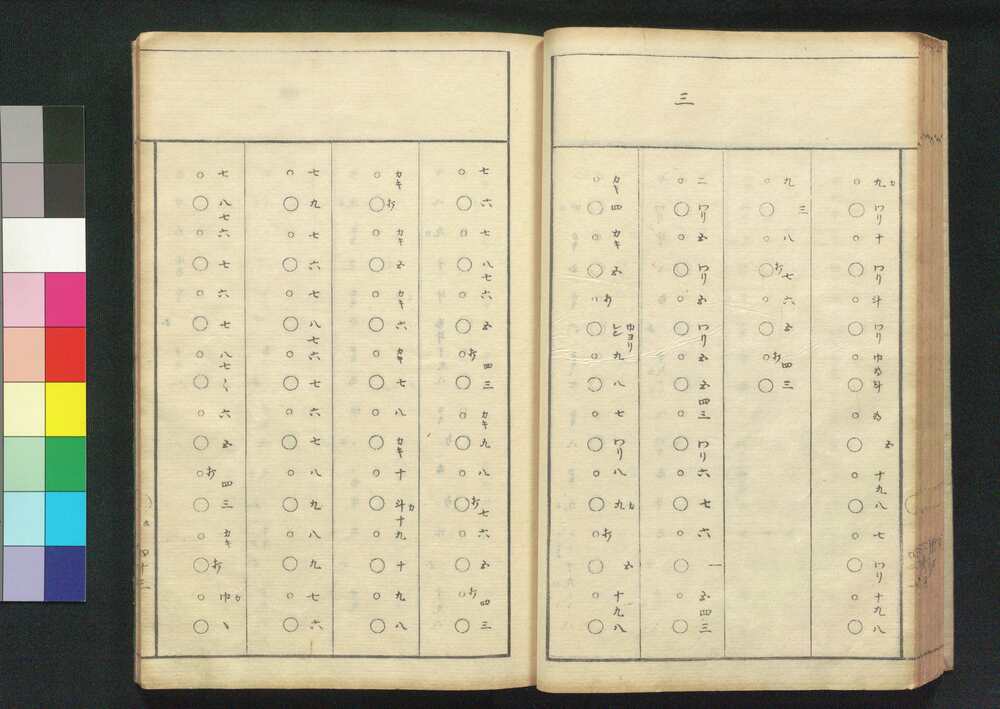 三
九カ ワリ 十 ワリ 斗 ワリ 巾為斗 為 五 十九八 七 ワリ 十九八
九 三 八 オ七 六 五 オ四三
二 ワリ 五 ワリ 五 ワリ 五 五四三 ワリ 六 七 六 一 五四三
カキ 四 カキ 五 オ 巾ヨリ 九 八 七 ワリ 八 九カ オ 五 十九八
七 六 七 八七六 五 オ四三 カキ 九 八 オ七 六 五 オ四 三
カキ オ カキ 五 カキ 六 カキ 七 八 カキ 十 斗カ十九 十 九 八
七 九 七 六 七 八七六 七 六 七 八 九 八 九 七 六
七 八七六 七 六 七 八七〱 六 五 オ四 三 カキ オ 巾カ 、
四十三